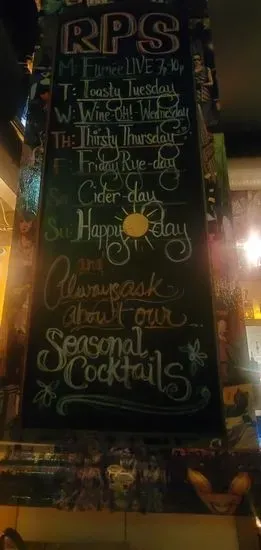 RPS
M: Eumee LIVE 7p-10p
T: Toasty Tuesday
W: Wine-OH!-Wednesday
TH: Thirsty Thursday
F: Friday Rye-day
Sa: Cider-day
Su: Happy day
and
Always ask
about our ...
Seasonal
Cocktails